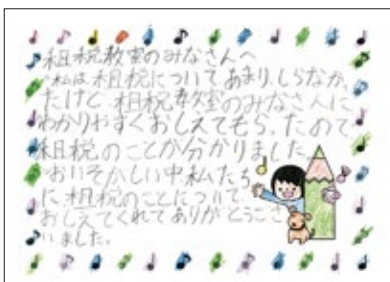 租税教室のみなさんへ
私は租税について、あまりしらなかっ
たけど、租税教室のみなさんに
わかりやすくおしえてもらったので、
租税のことが分かりました。
おいそがしい中私たち
に租税のことについて、
おしえてくれてありがとうござ
いました。